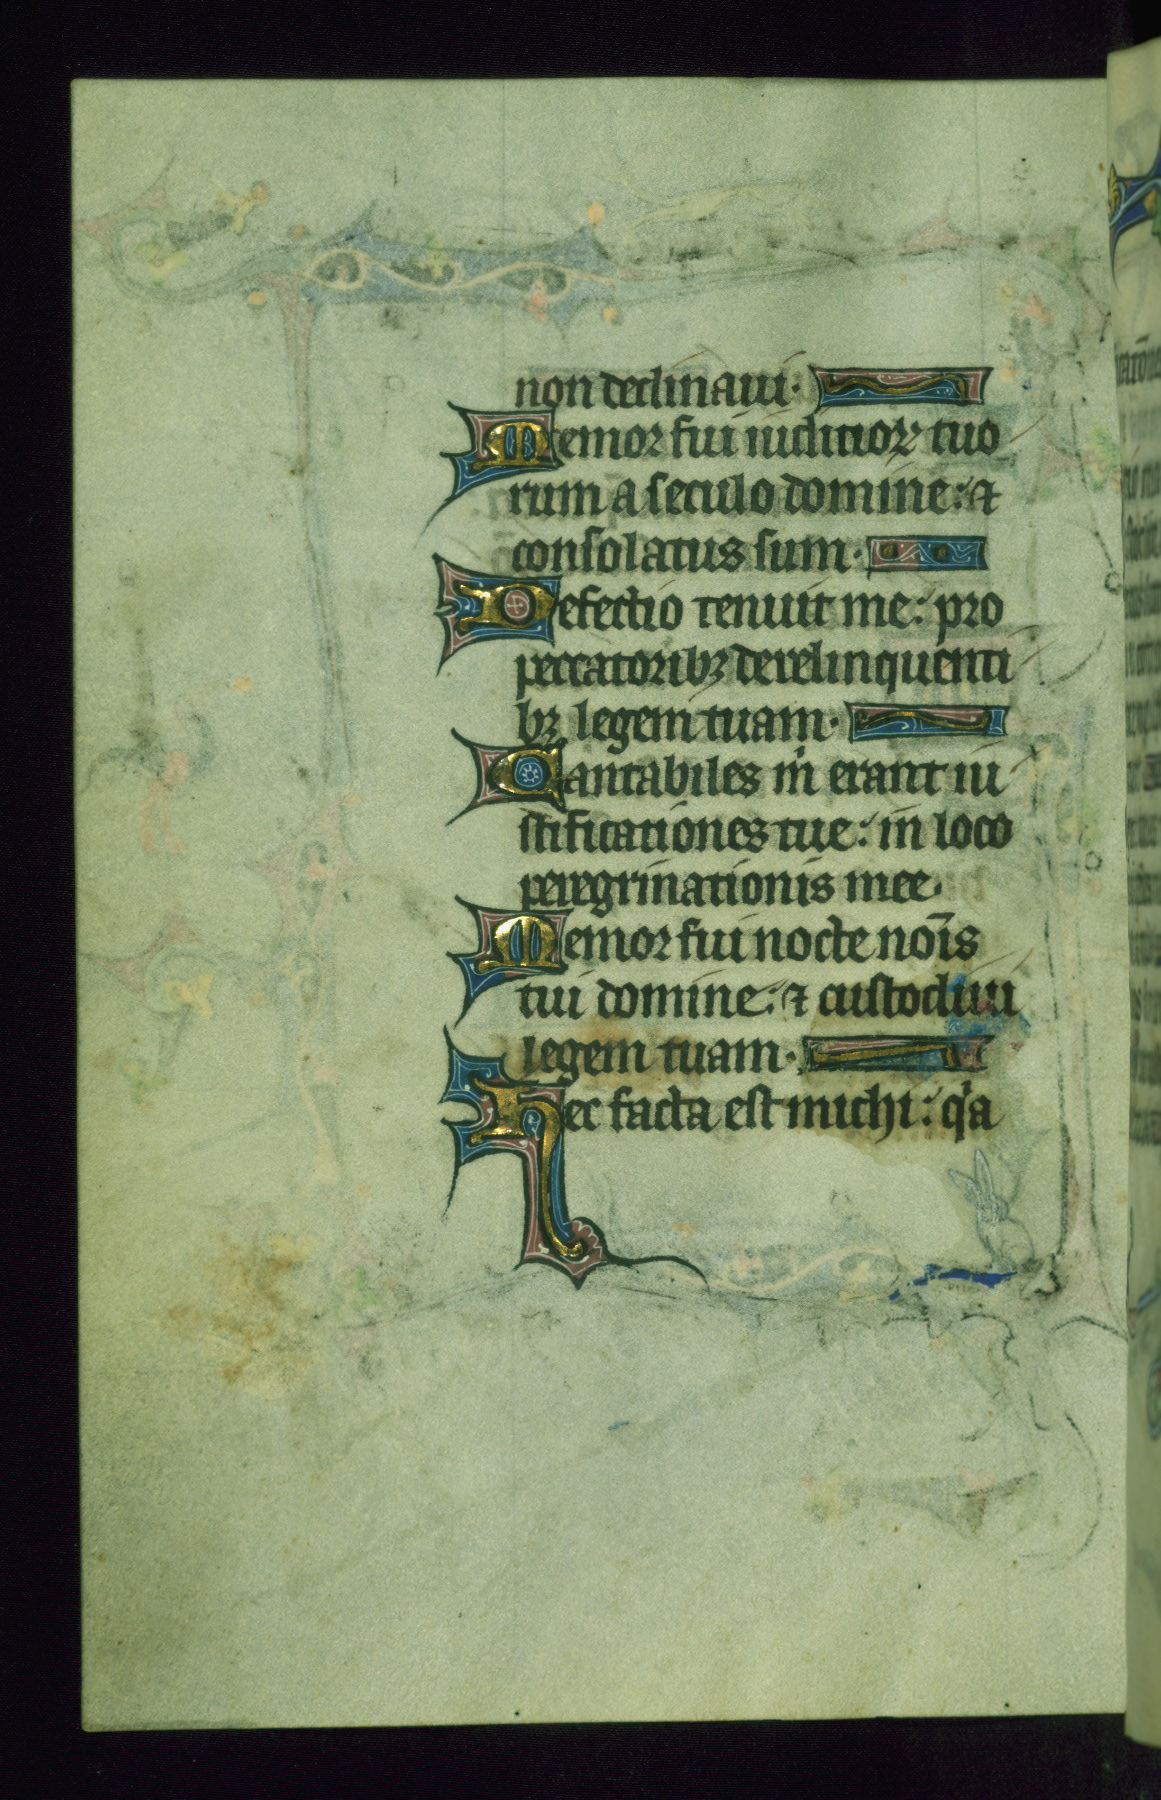 non declinaui·
Memor fui iudicioꝝ tuo
rum a seculo domine: ⁊
consolatus sum·
Defectio tenuit me: pro
peccatoribꝫ derelinquenti
bꝫ legem tuam·
Cantabiles m̍ erant iu
stificationes tue: in loco
peregrinationis mee·
Memor fui nocte noīs
tui domine: ⁊ custodiui
legem tuam·
Hec facta est michi: qͥa